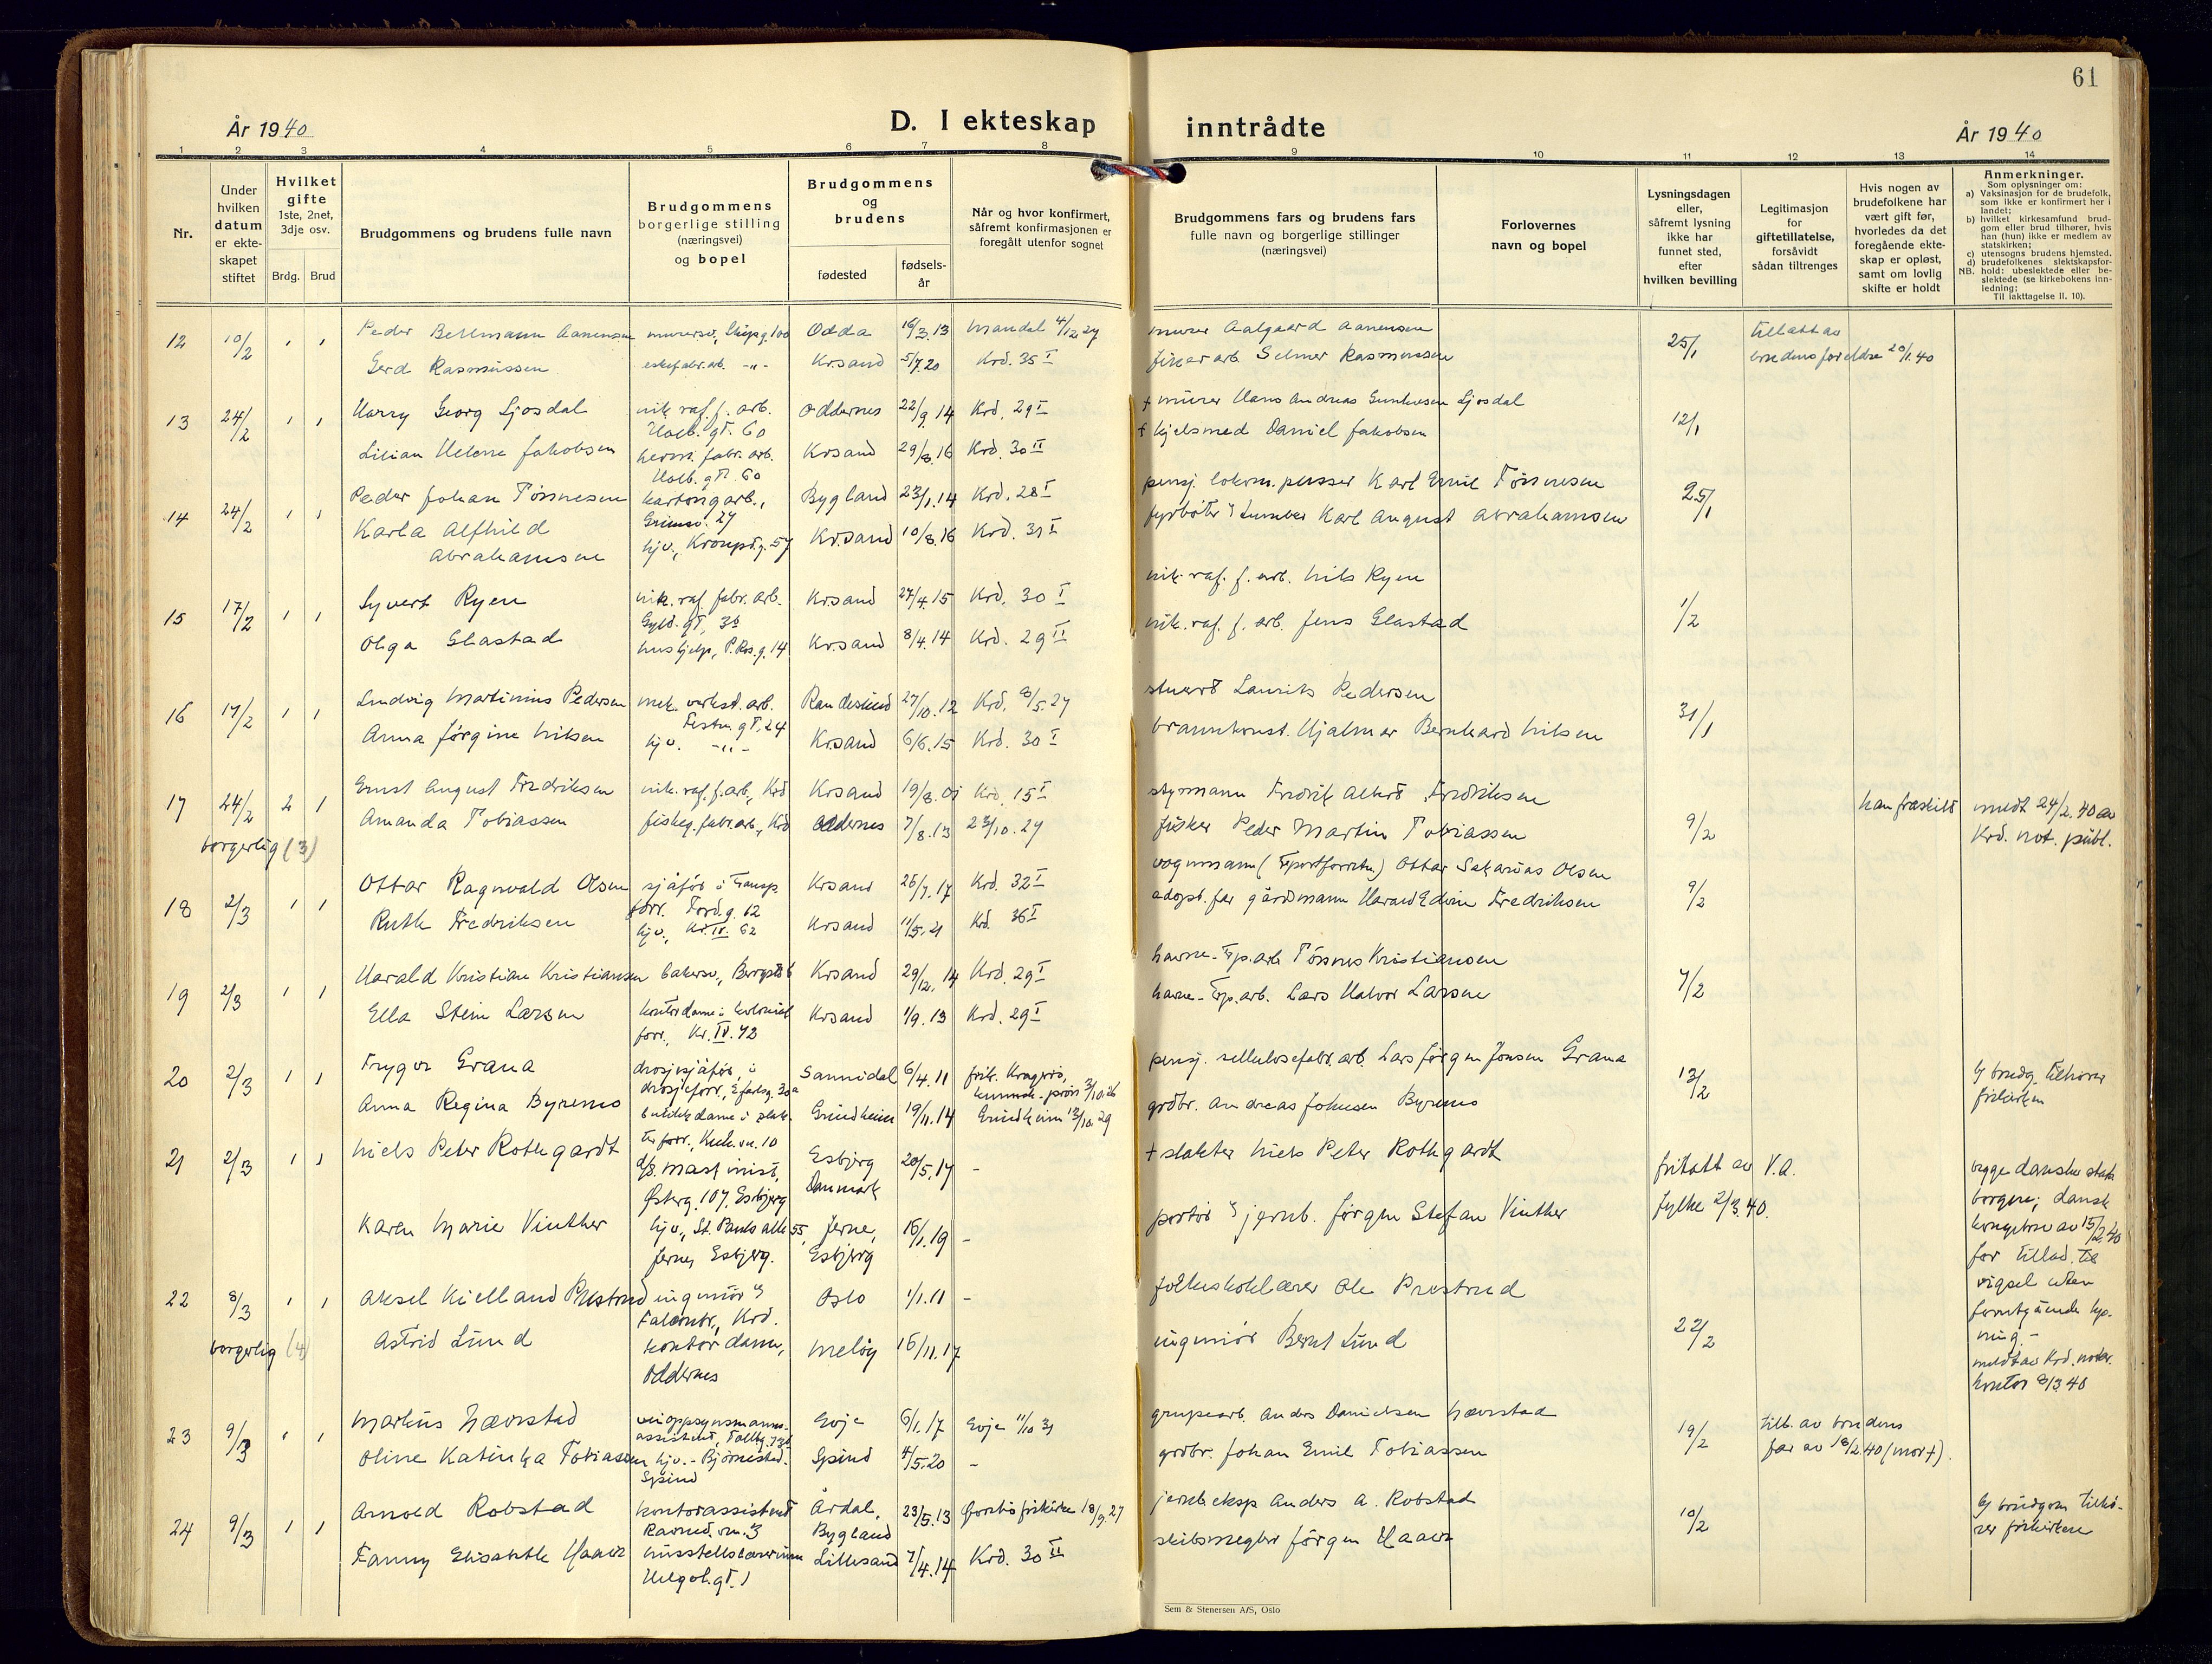 61
År 1940
D. I ekteskap inntrådte
År 1940
1 2 3 4 5 6 7 8 9 10 11 12 13 14
Nr.
Under hvilken datum er ekte-skapet stiftet
Hvilket gifte
1ste, 2net, 3dje osv.
Brdg. Brud
Brudgommens og brudens fulle navn
Brudgommens borgerlige stilling (næringsvei) og bopel
Brudgommens og brudens
fødested
fødsels-år
Når og hvor konfirmert, såfremt konfirmasjonen er foregått utenfor sognet
Brudgommens fars og brudens fars fulle navn og borgerlige stillinger (næringsvei)
Forlovernes navn og bopel
Lysningsdagen eller, såfremt lysning ikke har funnet sted, efter hvilken bevilling
Legitimasjon for giftetillatelse, forsåvidt sådan tiltrenges
Hvis nogen av brudefolkene har vært gift før, hvorledes da det foregående ekte-skap er opløst, samt om lovlig skifte er holdt
Anmerkninger.
Som oplysninger om:
a) Vaksinasjon for de brudefolk, som ikke er konfirmert her i landet;
b) hvilket kirkesamfund brud-gom eller brud tilhører, hvis han (hun) ikke er medlem av statskirken;
c) utensogns brudens hjemsted.
d) brudefolkenes slektskapsfor-
NB. hold: ubeslektede eller be-slektede (se kirkebokens inn-ledning;
Til iakttagelse II. 10).
12 10/2 1 1 Peder Bellmann Aanensen murersv., Skipsg. 100 Odda 16/3.13 Mandal 4/12 27 murer Aalgaard Aanensen 25/1 tillatt av
Gerd Rasmussen eskefabr.arb. -"- Kr.sand 5/7.20 Krd. 35 I fisker arb. Selmer Rasmussen brudens foreldre 20/1.40
13 24/2 1 1 Harry Georg Ljosdal nik. raf. f. arb. Oddernes 22/9.14 Krd. 29 I + murer Hans Andreas Gunhvesen Ljosdal 12/1
Holb. gt. 60
Lilian Helene Jakobsen herm. fabr. arb. Krsand 29/8.16 Krd. 30 II + kjelsmed Daniel Jakobsen
Holb. gt. 60
14 24/2 1 1 Peder Johan Tønnesen kartongarb., Bygland 23/1.14 Krd. 28 I pensj. lokom. pusser Karl Emil Tønnesen 25/1
Grimsv. 27
Karla Alfhild Abrahamsen hjv., Kronprg. 57 Kr.sand 10/8.16 Krd. 31 I fyrbøter Karl August Abrahamsen
15 17/2 1 1 Syvert Ryen nik. raf. fabr. arb. Kr.sand 27/4.15 Krd. 30 I nik. raf. f. arb. Nils Ryen 1/2
Gyld. gt. 36
Olga Glastad hushjelp, P. Ros. g. 14 Kr.sand 8/4.14 Krd. 29 II nik. raf. f. arb. Jens Glastad
16 17/2 1 1 Ludvig Martinius Pedersen mek. verkst. arb. Randesund 27/10.12 Krd. 8/5.27 stuert Laurits Pedersen 31/1
Festn. gt. 24
Anna Jørgine Nilsen hjv. -"- Kr.sand 6/6.15 Krd. 30 I brannkonst. Hjalmar Bernhard Nilsen
17 24/2 2 1 Ernst August Fredriksen nik. raf. f. arb., Krd Krsand 19/8.01 Krd. 15 I styrmann Fredrik Albert Fredriksen 9/2 han fraskilt meldt 24/2.40 av
Amanda Tobiassen fiskeg. fabr. arb., Krd Oddernes 7/8.13 23/10.27 fisker Peder Martin Tobiassen Krd. not. publ.
borgerlig (3)
18 2/3 1 1 Ottar Ragnvald Olsen sjåfør i transp. Krsand 26/7.17 Krd. 32 I vognmann (tsportforretn) Ottar Sakarias Olsen 9/2
forr. Tord. g. 62
Ruth Fredriksen hjv., Kr. IV. 62 Krsand 11/5.21 Krd. 36 I adopt. far gårdsmann Harald Edvin Fredriksen
19 2/3 1 1 Harald Kristian Kristiansen bakersv., Bergst 6 Krsand 29/12.14 Krd. 29 I havne-tsp. arb. Tønnes Kristiansen 7/2
Ella Stein Larsen kontordame i kolonial Krsand 1/9.13 Krd. 29 I havne-tsp. arb. Lars Halvor Larsen
forr. Kr. IV. 72
20 2/3 1 1 Trygve Grana drosjesjåfør, i Sannidal 6/4.11 frik. Kragerø, pensj. cellulosefabr. arb. Lars Jørgen Jonsen Grana 13/2 brudg. tilhører
drosjeforr., 30a 3/10.26 frikirken
Anna Regina Byremo butikkdame i Grindheim 19/11.14 Grindheim 13/10.29 grdbr. Andreas Johnsen Byremo
forr., 10
21 2/3 1 1 Niels Peter Rothgardt d/s. maskinist, Esbjerg 20/5.17 - + slakter Niels Peter Rothgardt fritatt av V.A. begge danske stats
Østerg. 107, Esbjerg Danmark fylke 2/3.40. borgere; dansk
Karen Marie Vinther hjv., St. Pauls alle 55, Jerne, 16/1.19 - portør v jernb. Jørgen Stefan Vinther kongebrev av 15/2.40
Jerne, Esbjerg. Esbjerg for tillad. til
vigsel uten
forutgående lys-
ning.-
22 8/3 1 1 Aksel Kielland Prestrud ingeniør v Oslo 1/1.11 - folkeskolelærer Ole Prestrud 22/2 meldt av Krd. notar.
Falconbr., Krd. kontor 8/3 40
borgerlig (4) Astrid Lund kontordame, Meløy 16/11.17 ingeniør Bernt Lund
Oddernes
23 9/3 1 1 Markus Nævestad veioppsynsmanns- Evje 6/1.17 Evje 11/10 31 grupearb. Anders Danielsen Nævestad 19/2 till. av brudens
assistent,
Oline Katinka Tobiassen hjv. - Bjørnestad. Spind 4/5.20 - grdbr. Johan Emil Tobiassen far av 18/2 40 (mor +).
Spind
24 9/3 1 1 Arnold Robstad kontorassistent Årdal, 23/5.13 frikirke 18/9.27 jernb.eksp Anders A. Robstad 10/2 brudgom tilhø-
Ravned. vn. 3 Bygland rer frikirken
Fanny Elisabeth Haaer husstellslærerinne Lillesand 7/4.14 Krd. 30 II skibsmegler Jørgen Haaer
Helgol. gt. 1
Sem & Stenersen A/S, Oslo